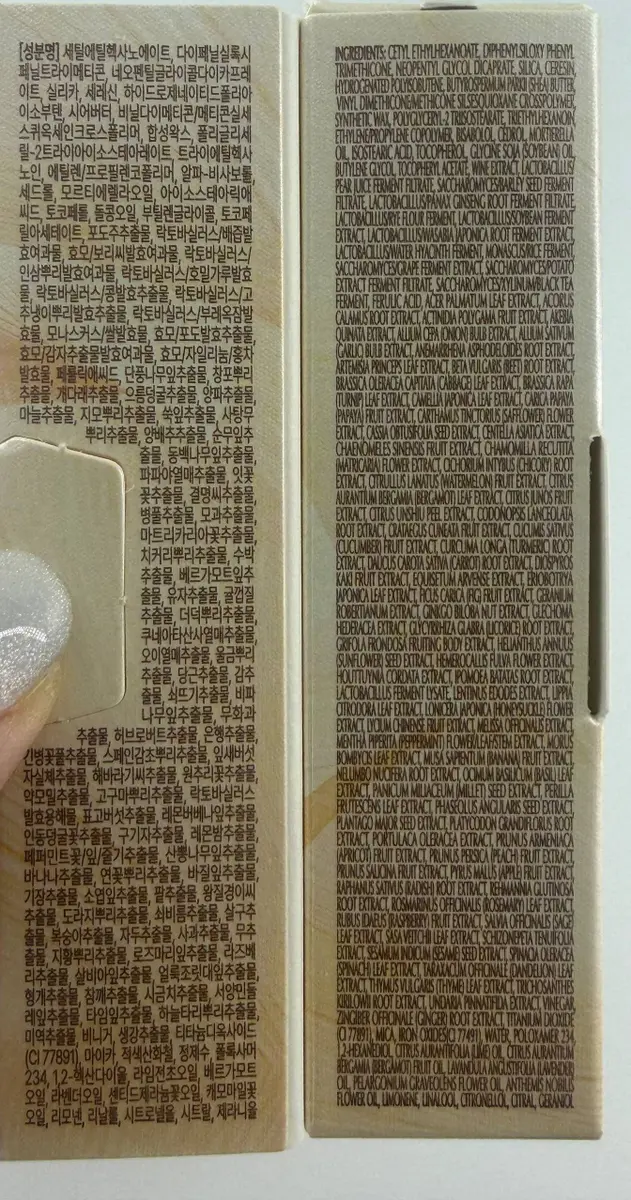 [성분명] 세틸에틸헥사노에이트, 다이페닐실록시
페닐트라이메티콘, 네오펜틸글라이콜다이카프레
이트, 실리카, 세레신, 하이드로제네이티드폴리아
이소부텐, 시어버터, 비닐다이메티콘/메티콘실세
스퀴옥세인크로스폴리머, 합성왁스, 폴리글리세
릴-2트라이아이소스테아레이트, 트라이에틸헥사
노인, 에틸렌/프로필렌코폴리머, 알파-비사보롤,
세드롤, 모르티에렐라오일, 아이소스테아릭애
씨드, 토코페롤, 돌콩오일, 부틸렌글라이콜, 토코페
릴아세테이트, 포도주추출물, 락토바실러스/배즙발
효여과물, 효모/보리씨발효여과물, 락토바실러스/
인삼뿌리발효여과물, 락토바실러스/호밀가루발효
물, 락토바실러스/콩발효추출물, 락토바실러스/고
추냉이뿌리발효추출물, 락토바실러스/부레옥잠발
효물, 모나스커스/쌀발효물, 효모/포도발효추출물,
효모/감자추출물발효여과물, 효모/자일리눔/홍차
발효물, 페룰릭애씨드, 단풍나무잎추출물, 창포뿌리
추출물, 개다래추출물, 으름덩굴추출물, 양파추출물,
마늘추출물, 지모뿌리추출물, 쑥잎추출물, 사탕무
뿌리추출물, 양배추추출물, 순무잎추
출물, 동백나무잎추출물,
파파야열매추출물, 잇꽃
꽃추출물, 결명씨추출물,
병풀추출물, 모과추출물,
마트리카리아꽃추출물,
치커리뿌리추출물, 수박
추출물, 베르가모트잎추
출물, 유자추출물, 귤껍질
추출물, 더덕뿌리추출물,
쿠네아타산사열매추출물,
오이열매추출물, 울금뿌리
추출물, 당근추출물, 감추
출물, 쇠뜨기추출물, 비파
나무잎추출물, 무화과
추출물, 허브로버트추출물, 은행추출물,
긴병꽃풀추출물, 스페인감초뿌리추출물, 잎새버섯
자실체추출물, 해바라기씨추출물, 원추리꽃추출물,
약모밀추출물, 고구마뿌리추출물, 락토바실러스
발효용해물, 표고버섯추출물, 레몬버베나잎추출물,
인동덩굴꽃추출물, 구기자추출물, 레몬밤추출물,
페퍼민트꽃/잎/줄기추출물, 산뽕나무잎추출물,
바나나추출물, 연꽃뿌리추출물, 바질잎추출물,
기장추출물, 소엽잎추출물, 팥추출물, 왕질경이씨
추출물, 도라지뿌리추출물, 쇠비름추출물, 살구추
출물, 복숭아추출물, 자두추출물, 사과추출물, 무추
출물, 지황뿌리추출물, 로즈마리잎추출물, 라즈베
리추출물, 살비아잎추출물, 얼룩조릿대잎추출물,
형개추출물, 참깨추출물, 시금치추출물, 서양민들
레잎추출물, 타임잎추출물, 하늘타리뿌리추출물,
미역추출물, 비니거, 생강추출물, 티타늄디옥사이드
(CI 77891), 마이카, 적색산화철, 정제수, 폴록사머
234, 1,2-헥산다이올, 라임전초오일, 베르가모트
오일, 라벤더오일, 센티드제라늄꽃오일, 캐모마일꽃
오일, 리모넨, 리날룰, 시트로넬올, 시트랄, 제라니올
INGREDIENTS: CETYL ETHYLHEXANOATE, DIPHENYLSILOXY PHENYL
TRIMETHICONE, NEOPENTYL GLYCOL DICAPRATE, SILICA, CERESIN,
HYDROGENATED POLYISOBUTENE, BUTYROSPERMUM PARKII (SHEA) BUTTER,
VINYL DIMETHICONE/METHICONE SILSESQUIOXANE CROSSPOLYMER,
SYNTHETIC WAX, POLYGLYCERYL-2 TRIISOSTEARATE, TRIETHYLHEXANOIN,
ETHYLENE/PROPYLENE COPOLYMER, BISABOLOL, CEDROL, MORTIERELLA
OIL, ISOSTEARIC ACID, TOCOPHEROL, GLYCINE SOJA (SOYBEAN) OIL,
BUTYLENE GLYCOL, TOCOPHERYL ACETATE, WINE EXTRACT, LACTOBACILLUS/
PEAR JUICE FERMENT FILTRATE, SACCHAROMYCES/BARLEY SEED FERMENT
FILTRATE, LACTOBACILLUS/PANAX GINSENG ROOT FERMENT FILTRATE,
LACTOBACILLUS/RYE FLOUR FERMENT, LACTOBACILLUS/SOYBEAN FERMENT
EXTRACT, LACTOBACILLUS/WASABIA JAPONICA ROOT FERMENT EXTRACT,
LACTOBACILLUS/WATER HYACINTH FERMENT, MONASCUS/RICE FERMENT,
SACCHAROMYCES/GRAPE FERMENT EXTRACT, SACCHAROMYCES/POTATO
EXTRACT FERMENT FILTRATE, SACCHAROMYCES/XYLINUM/BLACK TEA
FERMENT, FERULIC ACID, ACER PALMATUM LEAF EXTRACT, ACORUS
CALAMUS ROOT EXTRACT, ACTINIDIA POLYGAMA FRUIT EXTRACT, AKEBIA
QUINATA EXTRACT, ALLIUM CEPA (ONION) BULB EXTRACT, ALLIUM SATIVUM
(GARLIC) BULB EXTRACT, ANEMARRHENA ASPHODELOIDES ROOT EXTRACT,
ARTEMISIA PRINCEPS LEAF EXTRACT, BETA VULGARIS (BEET) ROOT EXTRACT,
BRASSICA OLERACEA CAPITATA (CABBAGE) LEAF EXTRACT, BRASSICA RAPA
(TURNIP) LEAF EXTRACT, CAMELLIA JAPONICA LEAF EXTRACT, CARICA PAPAYA
(PAPAYA) FRUIT EXTRACT, CARTHAMUS TINCTORIUS (SAFFLOWER) FLOWER
EXTRACT, CASSIA OBTUSIFOLIA SEED EXTRACT, CENTELLA ASIATICA EXTRACT,
CHAENOMELES SINENSIS FRUIT EXTRACT, CHAMOMILLA RECUTITA
(MATRICARIA) FLOWER EXTRACT, CICHORIUM INTYBUS (CHICORY) ROOT
EXTRACT, CITRULLUS LANATUS (WATERMELON) FRUIT EXTRACT, CITRUS
AURANTIUM BERGAMIA (BERGAMOT) LEAF EXTRACT, CITRUS JUNOS FRUIT
EXTRACT, CITRUS UNSHIU PEEL EXTRACT, CODONOPSIS LANCEOLATA
ROOT EXTRACT, CRATAEGUS CUNEATA FRUIT EXTRACT, CUCUMIS SATIVUS
(CUCUMBER) FRUIT EXTRACT, CURCUMA LONGA (TURMERIC) ROOT
EXTRACT, DAUCUS CAROTA SATIVA (CARROT) ROOT EXTRACT, DIOSPYROS
KAKI FRUIT EXTRACT, EQUISETUM ARVENSE EXTRACT, ERIOBOTRYA
JAPONICA LEAF EXTRACT, FICUS CARICA (FIG) FRUIT EXTRACT, GERANIUM
ROBERTIANUM EXTRACT, GINKGO BILOBA NUT EXTRACT, GLECHOMA
HEDERACEA EXTRACT, GLYCYRRHIZA GLABRA (LICORICE) ROOT EXTRACT,
GRIFOLA FRONDOSA FRUITING BODY EXTRACT, HELIANTHUS ANNUUS
(SUNFLOWER) SEED EXTRACT, HEMEROCALLIS FULVA FLOWER EXTRACT,
HOUTTUYNIA CORDATA EXTRACT, IPOMOEA BATATAS ROOT EXTRACT,
LACTOBACILLUS FERMENT LYSATE, LENTINUS EDODES EXTRACT, LIPPIA
CITRODORA LEAF EXTRACT, LONICERA JAPONICA (HONEYSUCKLE) FLOWER
EXTRACT, LYCIUM CHINENSE FRUIT EXTRACT, MELISSA OFFICINALIS EXTRACT,
MENTHA PIPERITA (PEPPERMINT) FLOWER/LEAF/STEM EXTRACT, MORUS
BOMBYCIS LEAF EXTRACT, MUSA SAPIENTUM (BANANA) FRUIT EXTRACT,
NELUMBO NUCIFERA ROOT EXTRACT, OCIMUM BASILICUM (BASIL) LEAF
EXTRACT, PANICUM MILIACEUM (MILLET) SEED EXTRACT, PERILLA
FRUTESCENS LEAF EXTRACT, PHASEOLUS ANGULARIS SEED EXTRACT,
PLANTAGO MAJOR SEED EXTRACT, PLATYCODON GRANDIFLORUS ROOT
EXTRACT, PORTULACA OLERACEA EXTRACT, PRUNUS ARMENIACA
(APRICOT) FRUIT EXTRACT, PRUNUS PERSICA (PEACH) FRUIT EXTRACT,
PRUNUS SALICINA FRUIT EXTRACT, PYRUS MALUS (APPLE) FRUIT EXTRACT,
RAPHANUS SATIVUS (RADISH) ROOT EXTRACT, REHMANNIA GLUTINOSA
ROOT EXTRACT, ROSMARINUS OFFICINALIS (ROSEMARY) LEAF EXTRACT,
RUBUS IDAEUS (RASPBERRY) FRUIT EXTRACT, SALVIA OFFICINALIS (SAGE)
LEAF EXTRACT, SASA VEITCHII LEAF EXTRACT, SCHIZONEPETA TENUIFOLIA
EXTRACT, SESAMUM INDICUM (SESAME) SEED EXTRACT, SPINACIA OLERACEA
(SPINACH) LEAF EXTRACT, TARAXACUM OFFICINALE (DANDELION) LEAF
EXTRACT, THYMUS VULGARIS (THYME) LEAF EXTRACT, TRICHOSANTHES
KIRILOWII ROOT EXTRACT, UNDARIA PINNATIFIDA EXTRACT, VINEGAR,
ZINGIBER OFFICINALE (GINGER) ROOT EXTRACT, TITANIUM DIOXIDE
(CI 77891), MICA, IRON OXIDES(CI 77491), WATER, POLOXAMER 234,
1,2-HEXANEDIOL, CITRUS AURANTIFOLIA (LIME) OIL, CITRUS AURANTIUM
BERGAMIA (BERGAMOT) FRUIT OIL, LAVANDULA ANGUSTIFOLIA (LAVENDER)
OIL, PELARGONIUM GRAVEOLENS FLOWER OIL, ANTHEMIS NOBILIS
FLOWER OIL, LIMONENE, LINALOOL, CITRONELLOL, CITRAL, GERANIOL